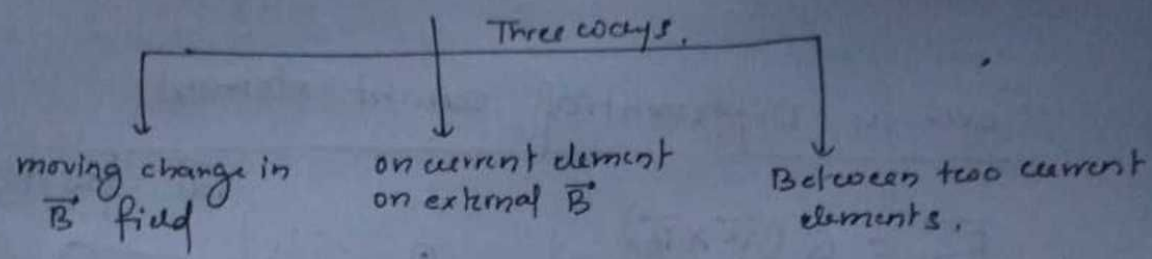 Three ways.
moving change in
B⃗ field
on current element
on external B⃗
Between two current
elements.